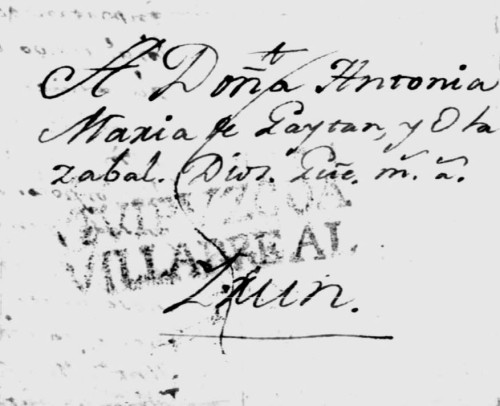 A Doña Antonia
Maria de Gaytan, y Ola
zabal. Dios. Gũe. m.ˢ a.ˢ
GUIPUZCOA
VILLAOREAL
Irun.